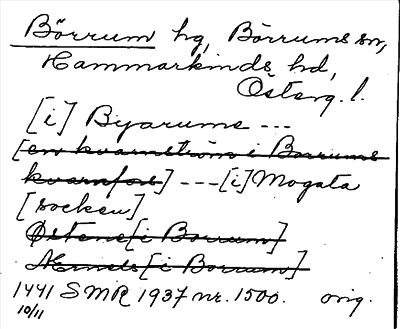 Börrum hg, Börrums sn,
Hammarkinds hd,
Österg. l.
[i] Byarums ---
[en kvarnström i Borrums
kvarnfors] ---[i] Mogata
[socken]
Østene[i Borrum]
[i Borrum]
1441 SMR 1937 nr. 1500. orig.
10/11